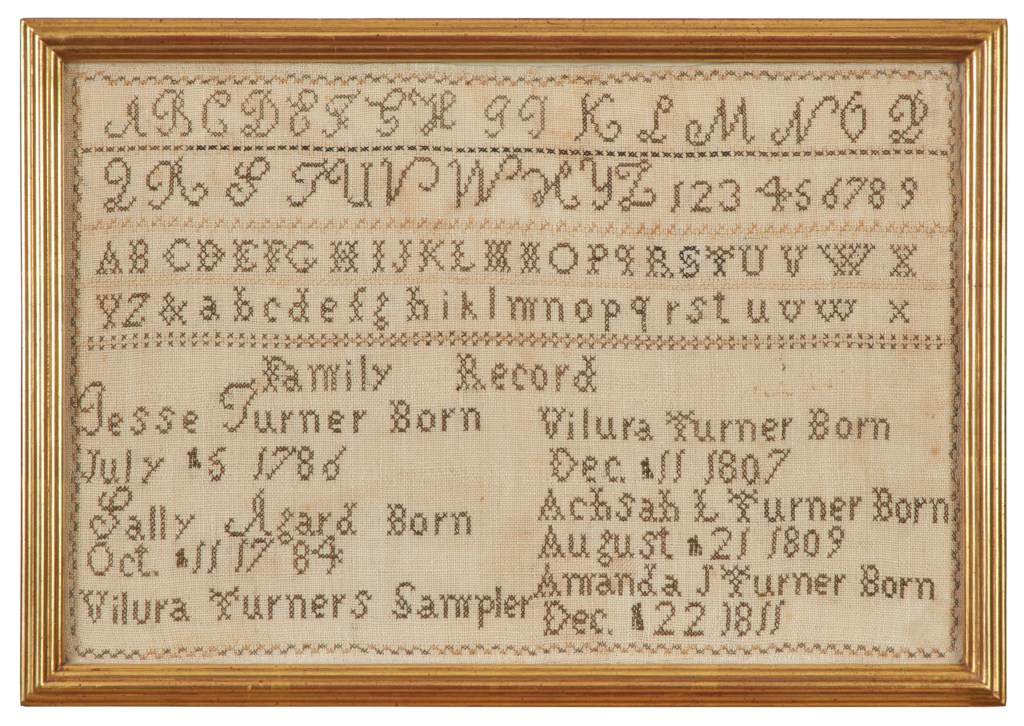 A B C D E F G H I J K L M N O P
Q R S T U V W X Y Z 1 2 3 4 5 6 7 8 9
A B C D E F G H I J K L M N O P q R S T U V W X
Y Z & a b c d e f g h i k l m n o p q r s t u v w x
Family Record
Jesse Turner Born
July 15 1786
Sally Agard Born
Oct. 11 1784
Vilura Turners Sampler
Vilura Turner Born
Dec. 11 1807
Achsah L Turner Born
August 21 1809
Amanda J Turner Born
Dec. 22 1811